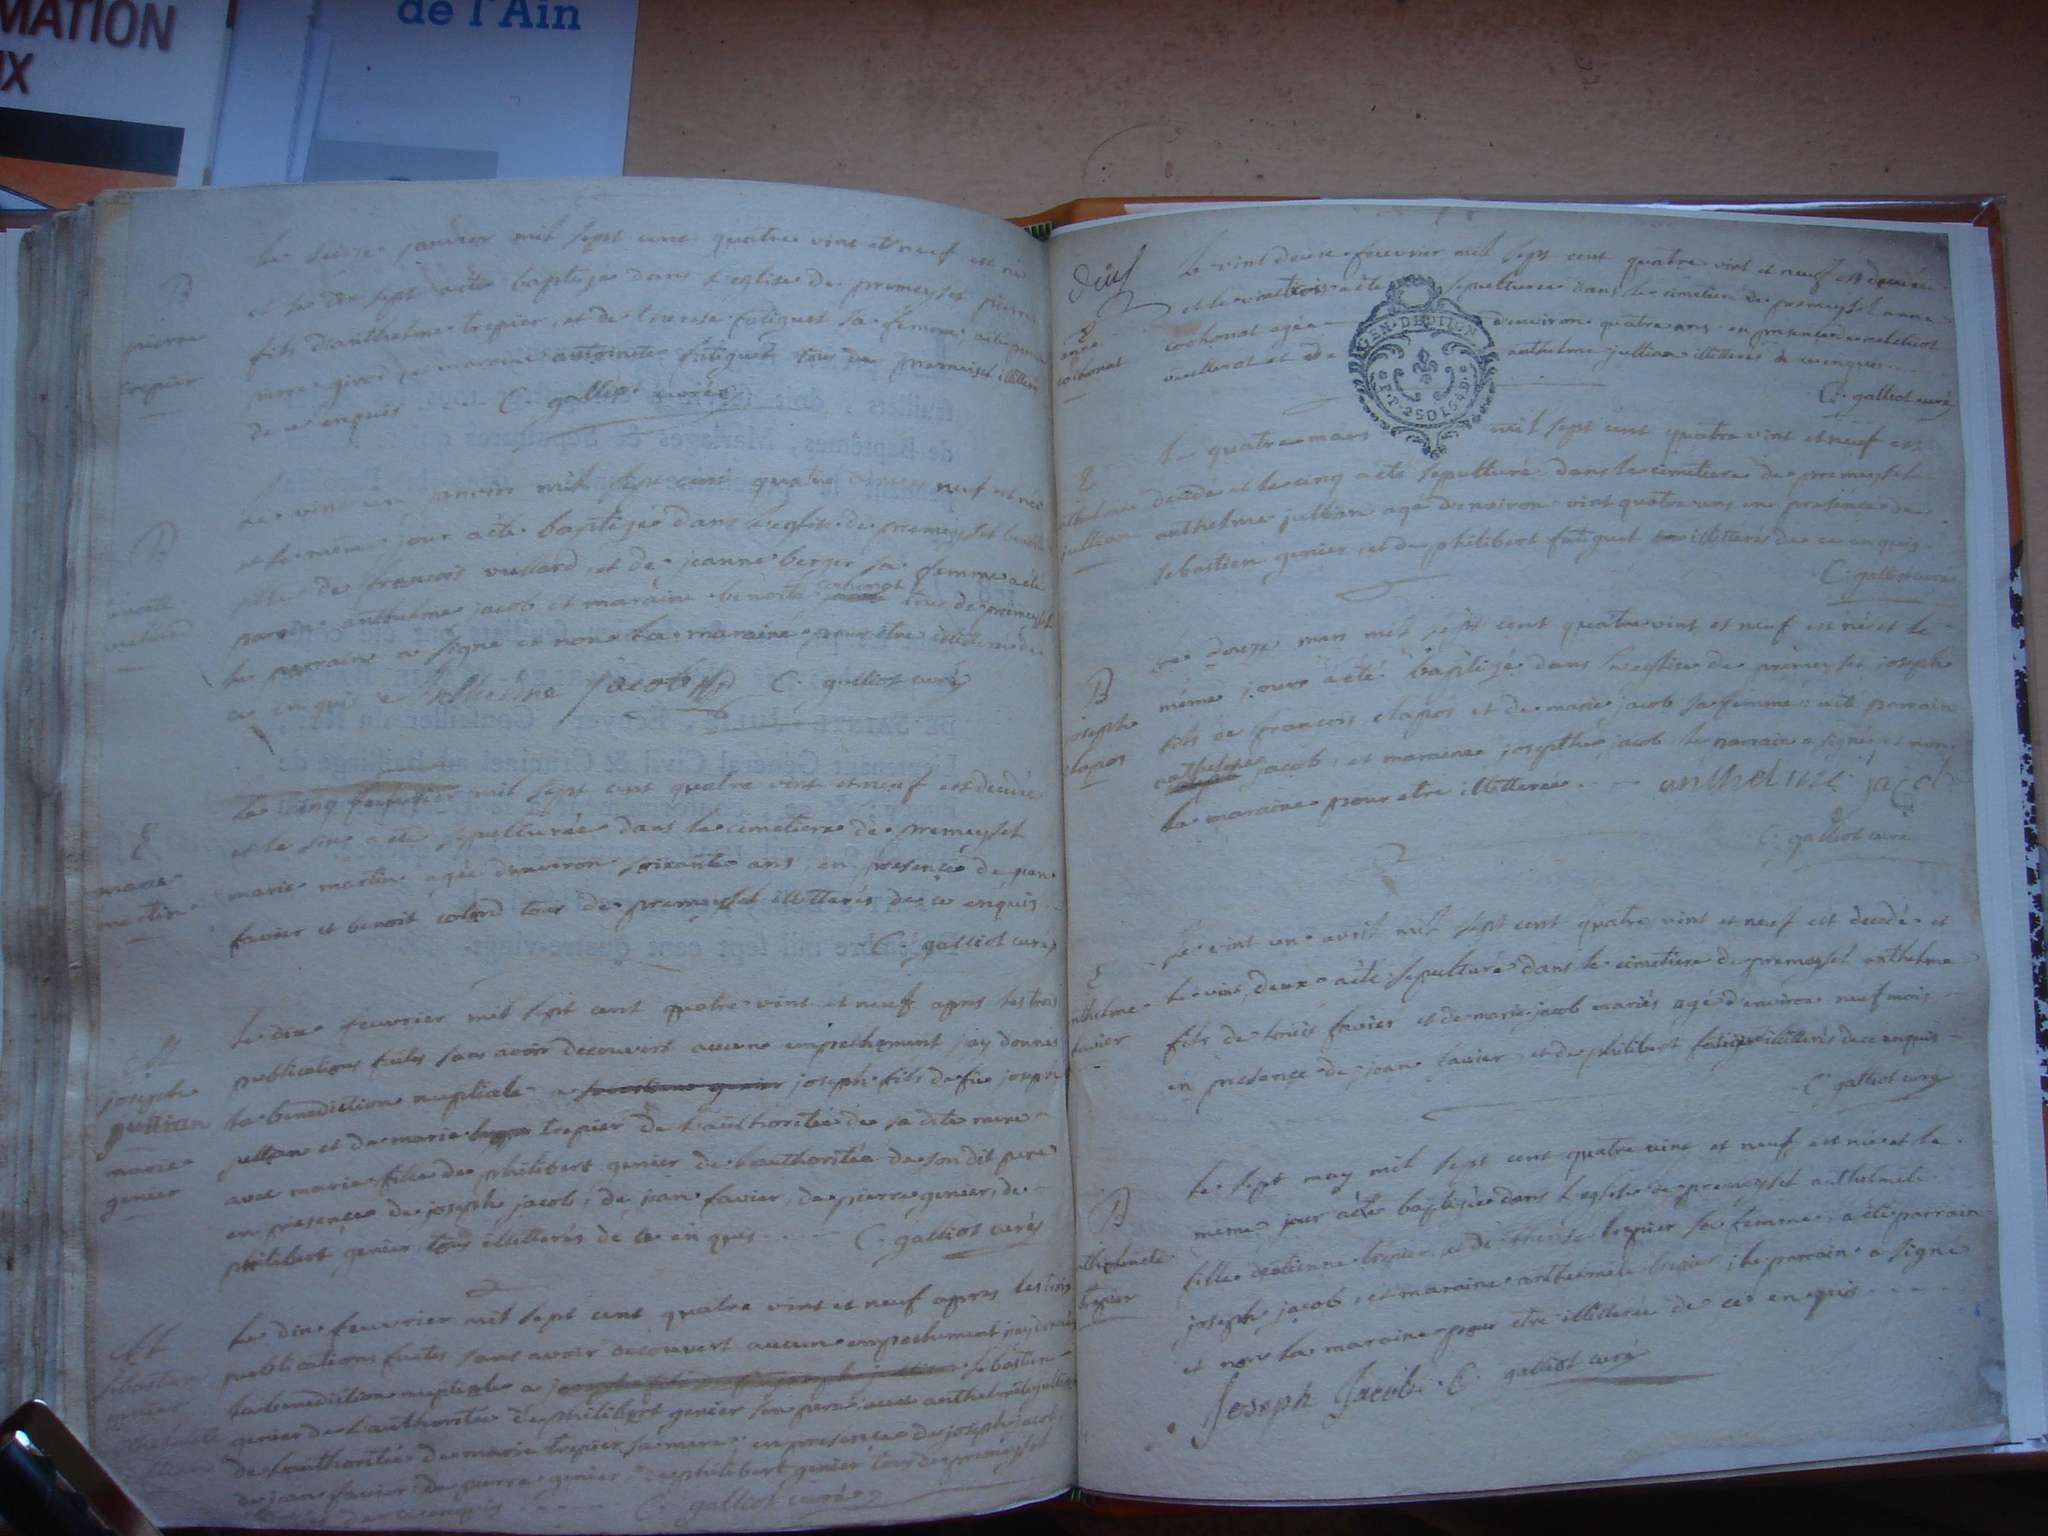 MATION
UX
de l'Ain
Le seize janvier mil sept cent quatre vint et neuf est né
et le dix sept a été baptisé dans l'eglise de premeyset pierre
fils d'anthelme trepier, et de therese fatiguet sa femme, a été parrain
pierre et maraine antoinete fatiguet tous de premeiset illitterés
de ce enquis C. galliot curé
B
pierre
trepier
Le vint un janvier mil sept cent quatre vint neuf est née
et le même jour a été baptizée dans l'eglise de premeyset benoite
fille de francois vullard et de jeanne berger sa femme a été
parrain anthelme jacob et maraine benoite cochonat tous de premeyset
le parrain a signé et non la maraine pour être illitterée de
ce enquis Anthelme Jacob C. galliot curé
B
benoite
Le cinq feuvrier mil sept cent quatre vint et neuf est decedée
et le six a été sepulturée dans le cimetiere de premeyset
marie martin agée d'environ soixante ans, en presence de jean
favier et benoit tous de premeyset illitterés de ce enquis
C. galliot curé
S
marie
martin
Le dix feuvrier mil sept cent quatre vint et neuf apres les trois
publications faites sans avoir decouvert aucun empechement j'ay donné
la benediction nuptiale a joseph fils de fu joseph
jullian et de marie trepier de l'authorité de sa dite mere
avec marie fille de philibert genier de l'authorité de son dit pere
en presence de joseph jacob, de jean favier, de pierre genier, de
philibert genier tous illitterés de ce enquis C. galliot curé
M
joseph
jullian
marie
genier
Le dix feuvrier mil sept cent quatre vint et neuf apres les trois
publications faites sans avoir decouvert aucun empechement j'ay donné
la benediction nuptiale a sebastien
genier de l'authorité de philibert genier son pere, avec anthelmete jullian
de l'authorité de marie trepier sa mere, en presence de joseph jacob,
de jean favier, de pierre genier, de philibert genier tous de premeyset
de ce enquis C. galliot curé
M
sebastien
genier
anthelmete
jullian
deux
Le vint deux feuvrier mil sept cent quatre vint et neuf est decedée
et le vint trois a été sepulturée dans le cimetiere de premeyset anne
cochonat agée d'environ quatre ans en presence de melchiot
vuellerot et de anthelme jullian illitterés de ce enquis
C. galliot curé
S
anne
cochonat
GEN. DE DIJON
Le quatre mars mil sept cent quatre vint et neuf est
decedé et le cinq a été sepulturé dans le cimetiere de premeyset
anthelme jullian agé d'environ vint quatre ans en presence de
sebastien genier, et de philibert fatiguet illitterés de ce enquis
C. galliot curé
S
anthelme
jullian
Le douze mars mil sept cent quatre vint et neuf est né et le
même jour a été baptizé dans l'eglise de premeyset joseph
fils de francois clapos et de marie jacob sa femme, a été parrain
anthelme jacob, et maraine josepthe jacob le parrain a signé et non
la maraine pour etre illitterée anthelme jacob
C. galliot curé
B
joseph
clapos
Le vint un avril mil sept cent quatre vint et neuf est decedé et
le vint deux a été sepulturé dans le cimetiere de premeyset anthelme
fils de louis favier et de marie jacob mariés agé d'environ neuf mois
en presence de jean favier et de philibert fatiguet illitterés de ce enquis
C. galliot curé
S
anthelme
favier
Le sept may mil sept cent quatre vint et neuf est née et le
même jour a été baptisée dans l'eglise de premeyset anthelmete
fille d'etienne trepier et de therese trepier sa femme, a été parrain
joseph jacob, et maraine anthelmete trepier, le parrain a signé
et non la maraine pour etre illitterée de ce enquis
Joseph Jacob C. galliot curé
B
anthelmete
trepier